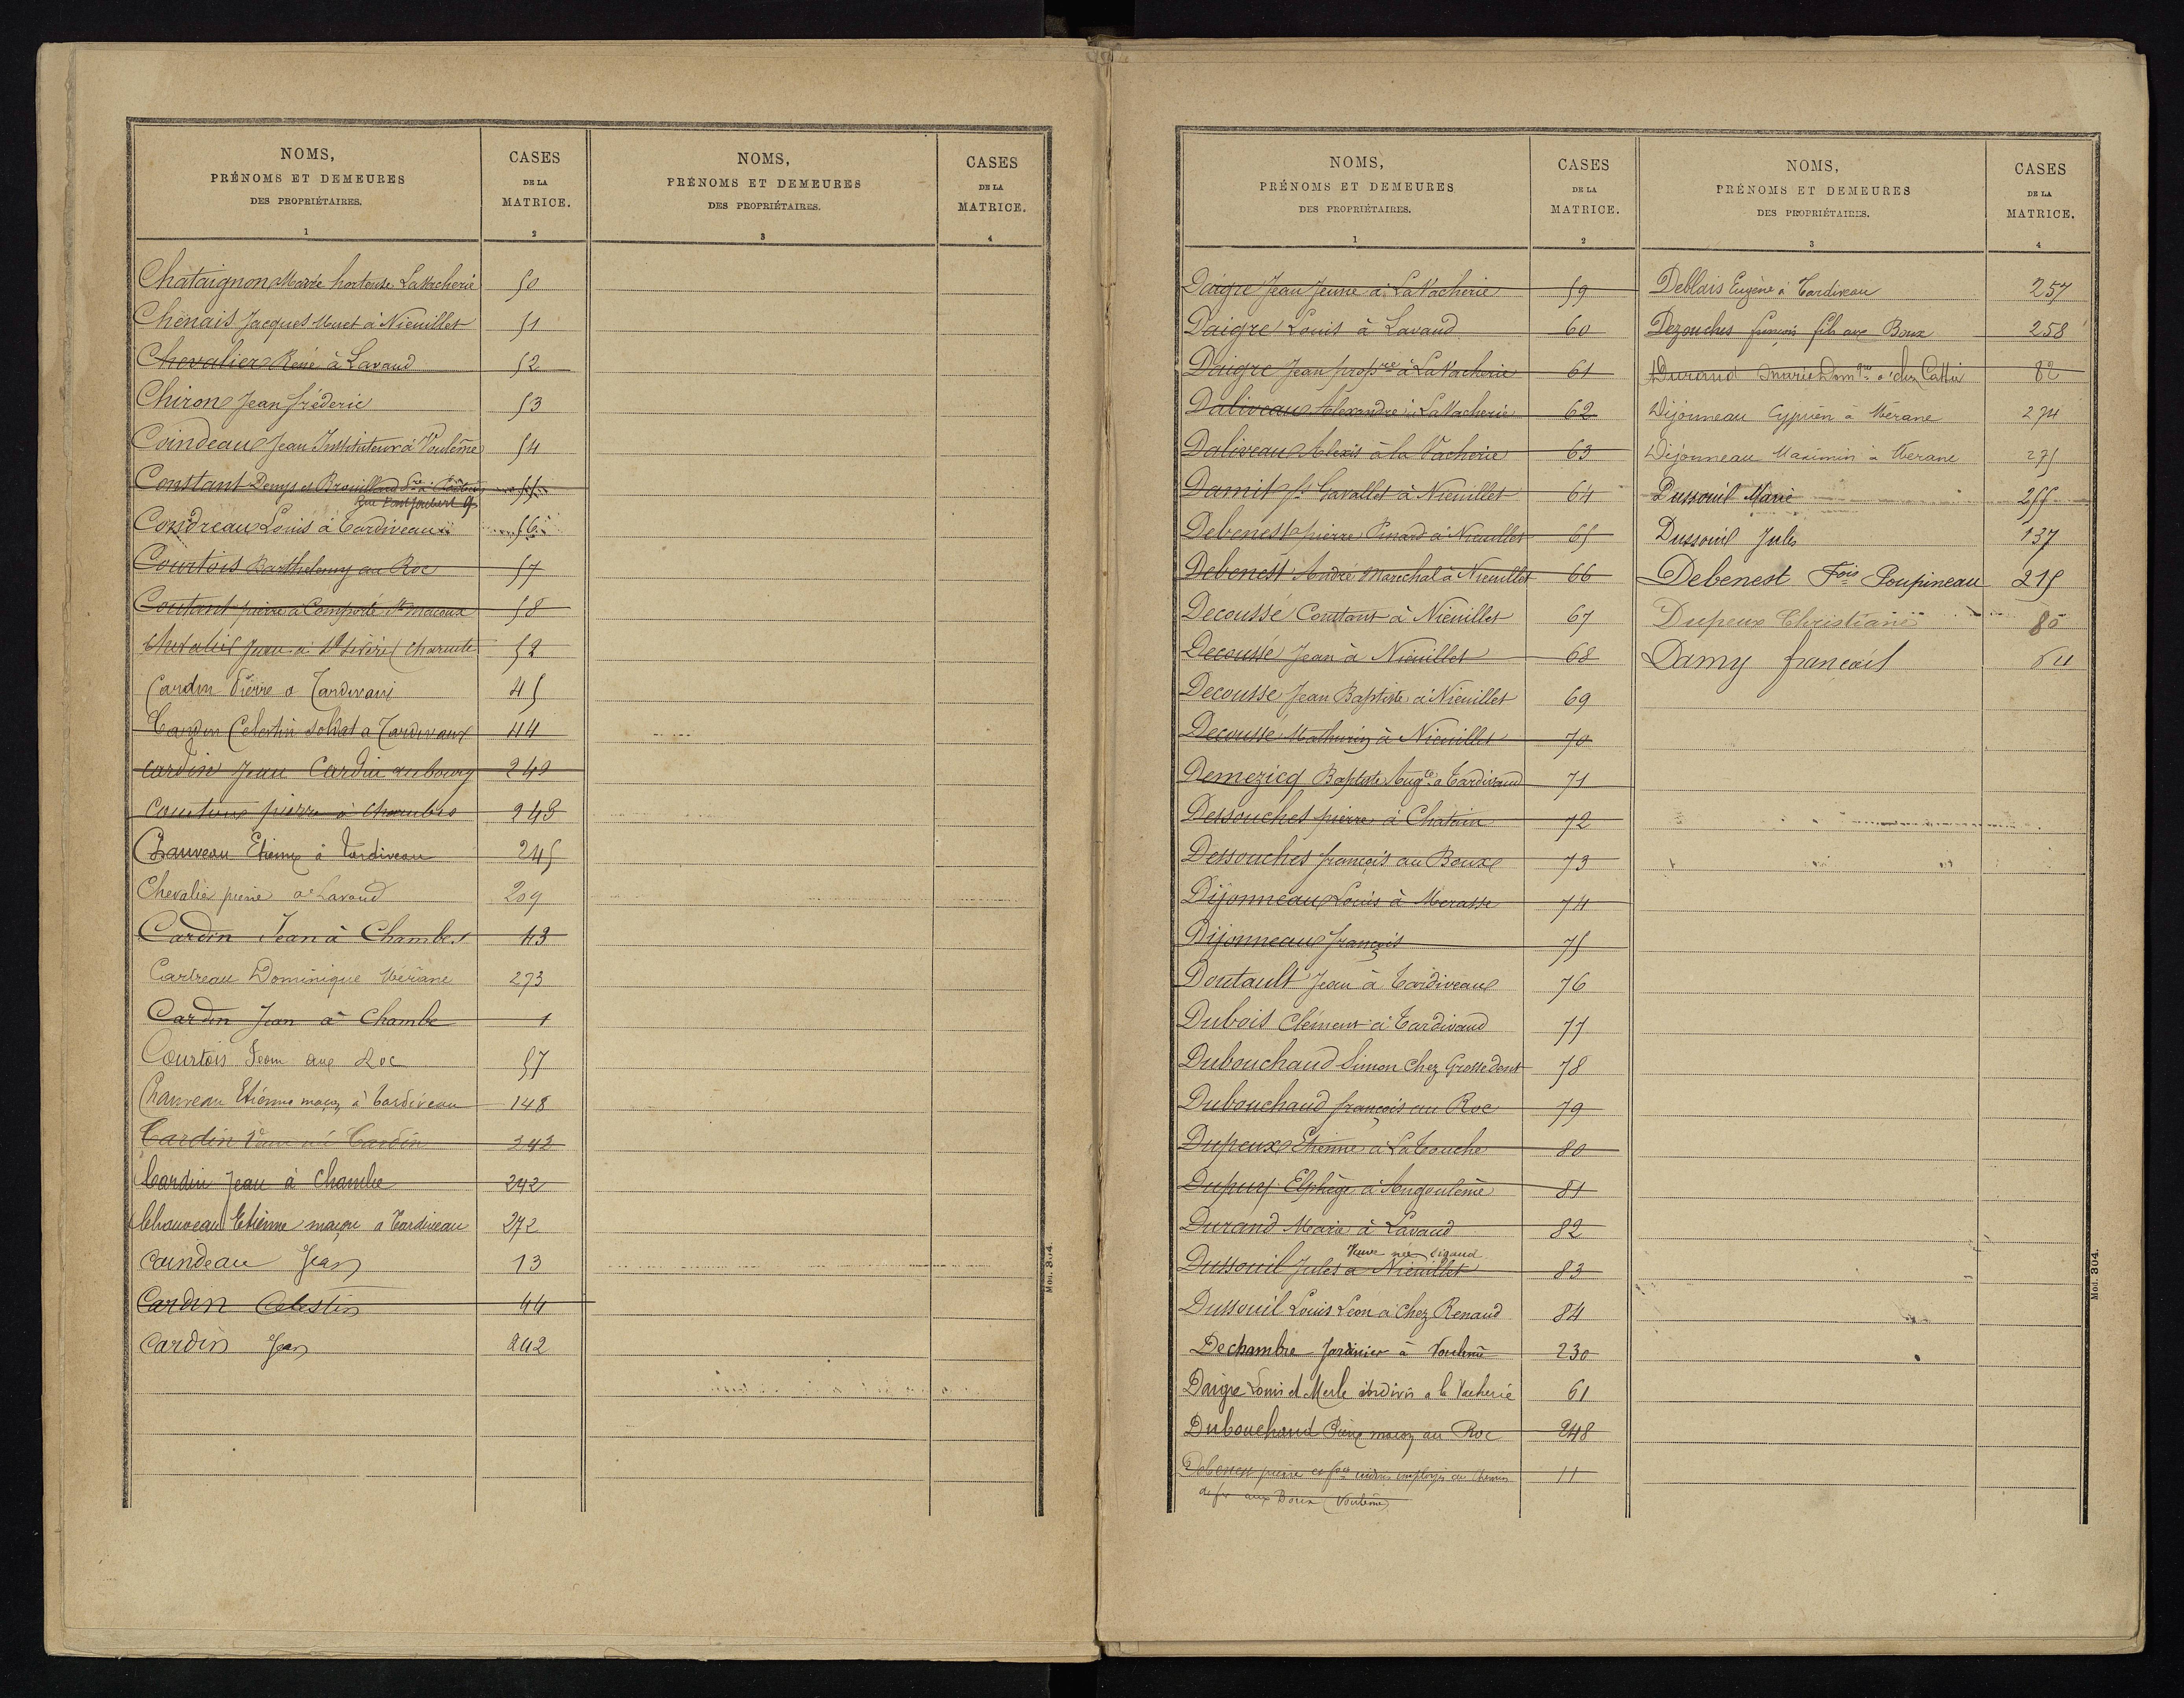 NOMS,
PRÉNOMS ET DEMEURES
DES PROPRIÉTAIRES.
1
CASES
DE LA
MATRICE.
2
NOMS,
PRÉNOMS ET DEMEURES
DES PROPRIÉTAIRES.
3
CASES
DE LA
MATRICE.
4
Chataignon Marie hortense LaVacherie 50
Chenais Jacques Muet à Nieuillet 51
Chevalier René à Lavaud 52
Chiron Jean frédéric 53
Coindeau Jean Instituteur à Voulême 54
Constant Denys et Brouillaud 55
Rue Joubert 9
Condreau Louis à Tardiveau 56
Courtois Barthelemy au Roc 57
Coutant pierre à Comporté St macoux 58
Chevalier Jean à St (Charente 52
Cardin Pierre a Tardiveau 45
Cardin Celestin soldat a Tardiveaux 44
Cardin Jean Cardin au bourg 249
pierre à Chambes 243
Chauveau Etienne à Tardiveau 245
Chevalier pierre à Lavaud 209
Cardin Jean à Chambes 43
Cartreau Dominique Mérane 273
Cardin Jean à Chambe 1
Courtois Jean aux Roc 57
Chauveau Etienne maçon à Tardiveau 148
Cardin Vve née Cardin 242
Cardin Jean à Chambe 242
Chauveau Etienne maçon a Tardiveau 272
Coindeau Jean 13
Cardin Celestin 44
Cardin Jean 242
Mod. 304.
NOMS,
PRÉNOMS ET DEMEURES
DES PROPRIÉTAIRES.
1
CASES
DE LA
MATRICE.
2
NOMS,
PRÉNOMS ET DEMEURES
DES PROPRIÉTAIRES.
3
CASES
DE LA
MATRICE.
4
Daigre Jean Jeune à LaVacherie 59
Daigre Louis à Lavaud 60
Daigre Jean propre à LaVacherie 61
Daliveau Alexandre à LaVacherie 62
Daliveau Alexis à la Vacherie 63
Damit fs Gavallet à Nieuillet 64
Debenest pierre Pinard à Nieuillet 65
Debenest André Marechal à Nieuillet 66
Decoussé Constant à Nieuillet 67
Decoussé Jean à Nieuillet 68
Decousse Jean Baptiste à Nieuillet 69
Decousse Mathurin à Nieuillet 70
Demezicq Baptiste Augte à Tardivaud 71
Dessouches pierre à Chatain 72
Dessouches françois au Boux 73
Dijonneau Louis à Merasse 74
Dijonneau françois 75
Doutault Jean à Tardiveau 76
Dubois Clément à Tardivaud 77
Dubouchaud Simon Chez Grosse dent 78
Dubouchaud françois au Roc 79
Dupeux Etienne à LaTouche 80
Dupuy Elphège à Angoulème 81
Durand Marie à Lavaud 82
Veuve née Rigaud
Dussouil Jules à Nieuillet 83
Dussouil Louis Leon à Chez Renaud 84
Dechambre Jardinier à Voulême 230
Daigre Louis et Merle indivis a la Vacherie 61
Dubouchaud Pierre maçon au Roc 248
Debenest pierre employés au chemin 11
de fer aux Boux (Voulême)
Deblais Eugène à Tardiveau 257
Dezouches françois fils aux Boux 258
Durand Marie Domque à chez Cattier 82
Dijonneau Cyprien à Mérane 274
Dijonneau Maximin à Mérane 275
Dussouil Marie 255
Dussouil Jules 137
Debenest Fois Poupineau 215
Dupeux Christiane 80
Damy français 64
Mod. 304.